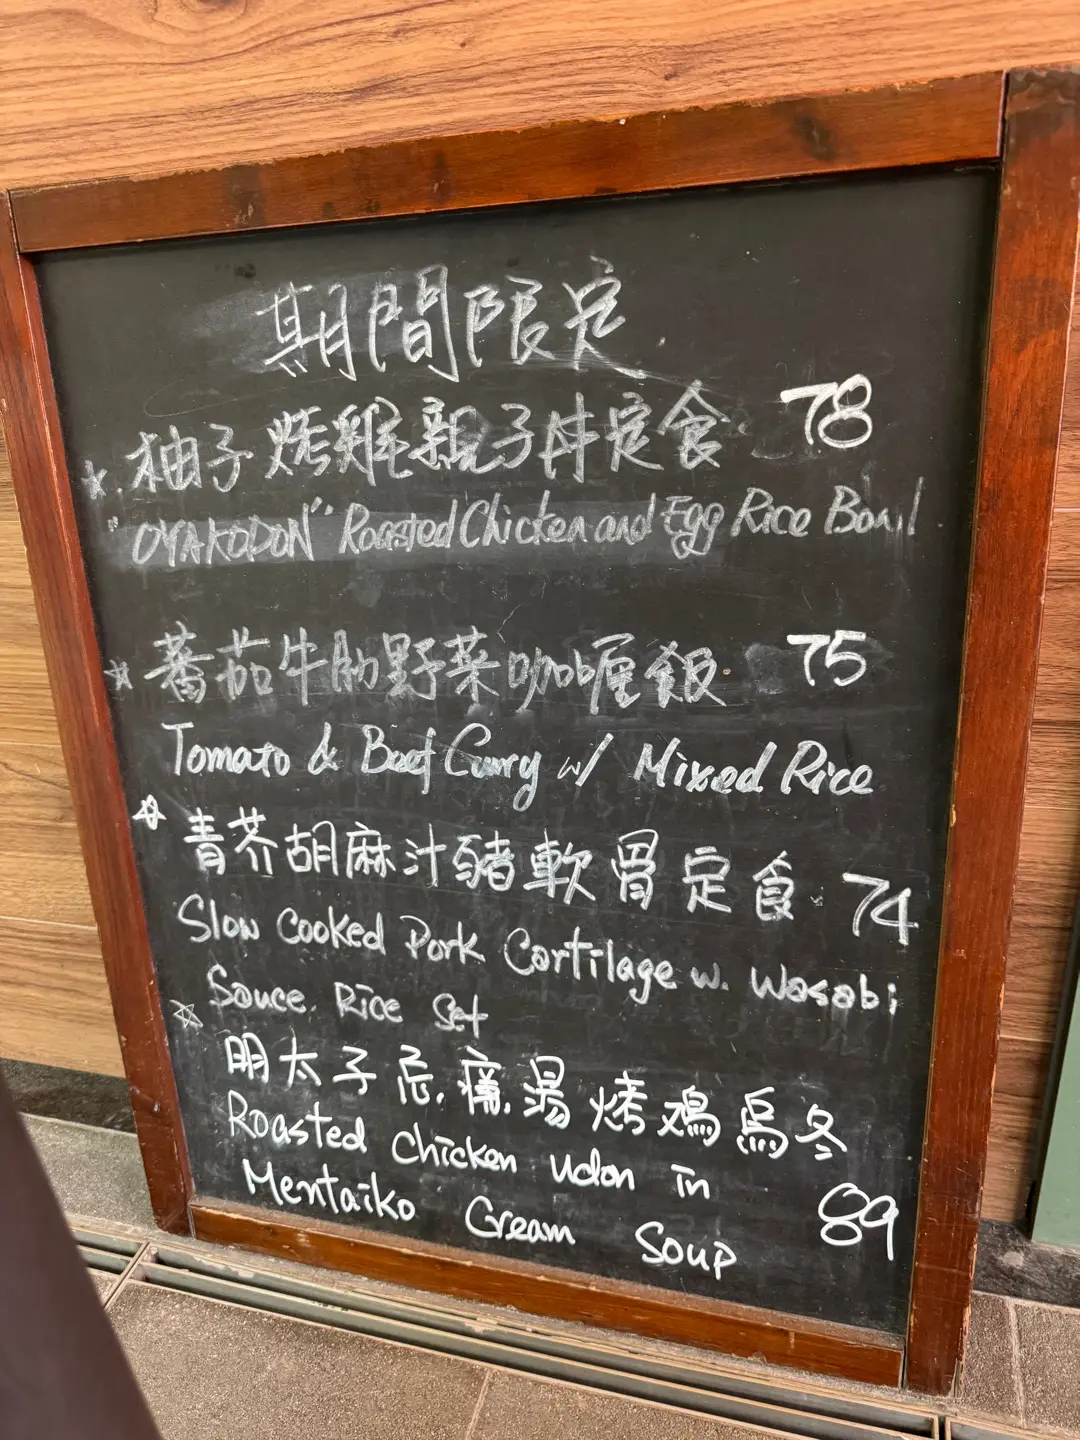 期間限定
柚子烤雞親子丼定食 78
"OYAKODON" Roasted Chicken and Egg Rice Bowl
蕃茄牛肋野菜咖喱飯 75
Tomato & Beef Curry w/ Mixed Rice
青芥胡麻汁豬軟骨定食 74
Slow Cooked Pork Cartilage w. Wasabi
Sauce. Rice Set
明太子忌.痛.湯烤鳮烏冬
Roasted Chicken Udon in
Mentaiko Cream Soup 89